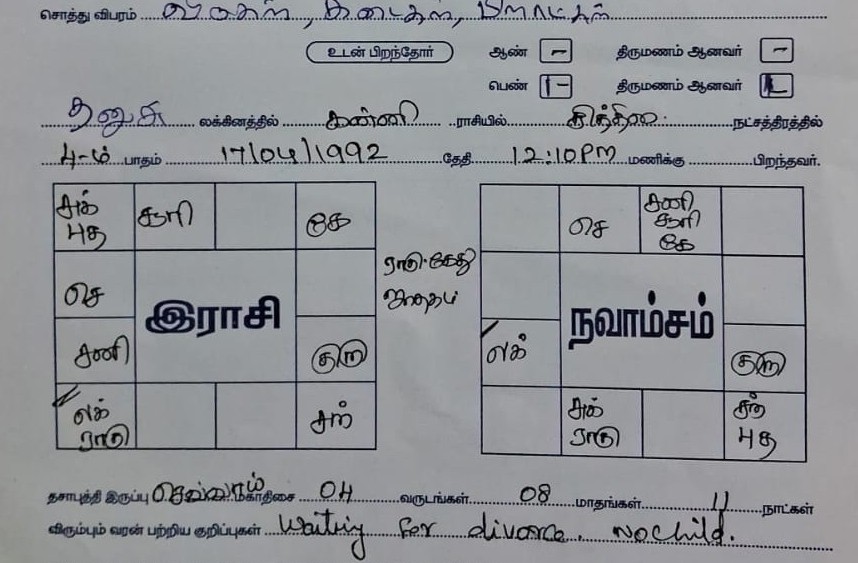 சொத்து விபரம் வீடுகள், கடைகள், பிளாட்கள்
உடன் பிறந்தோர் ஆண் - திருமணம் ஆனவர் -
பெண் 1- திருமணம் ஆனவர்
தனுசு லக்கினத்தில் கன்னி ராசியில் சித்திரை நட்சத்திரத்தில்
4-ம் பாதம் 17/04/1992 தேதி 12:10PM மணிக்கு பிறந்தவர்.
சுக் புத
சூரி
கே
செ
இராசி
சனி
குரு
லக் ராகு
சந்
ராகு-கேது
ஜாதகம்
செ
சனி சூரி கே
நவாம்சம்
லக்
குரு
சுக் ராகு
சந் புத
தசாபுத்தி இருப்பு செவ்வாய் மகாதிசை 04 வருடங்கள் 08 மாதங்கள் 11 நாட்கள்
விரும்பும் வரன் பற்றிய குறிப்புகள் Waiting for divorce. No child.